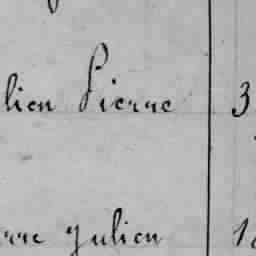 lien Pierre 3
rre Julien 1